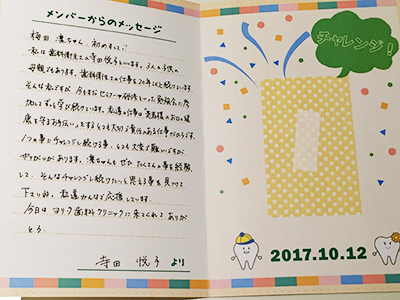 メンバーからのメッセージ
梅田 凛ちゃん、初めまして♡
私は歯科衛生士の寺田悦子といいます。3人の子供の
母親でもあります。歯科衛生士の仕事を20年以上続けています。
そんな私ですが、今もまだセミナーや研修といった勉強会に参
加してずっと学び続けています。私達の仕事は患者様のお口の健
康を守るお手伝いをするとても大切で責任ある仕事だからです。
1つの事にチャレンジし続ける事、とても大変で難しいですが
やりがいがあります。凛ちゃんもぜひたくさんの事を経験
して、そんなチャレンジし続けたいと思える事を見つけて
下さいね。私達みんなで応援しています。
今日はヨリタ歯科クリニックに来てくれて ありが
とう。
寺田 悦子 より
チャレンジ!
2017.10.12